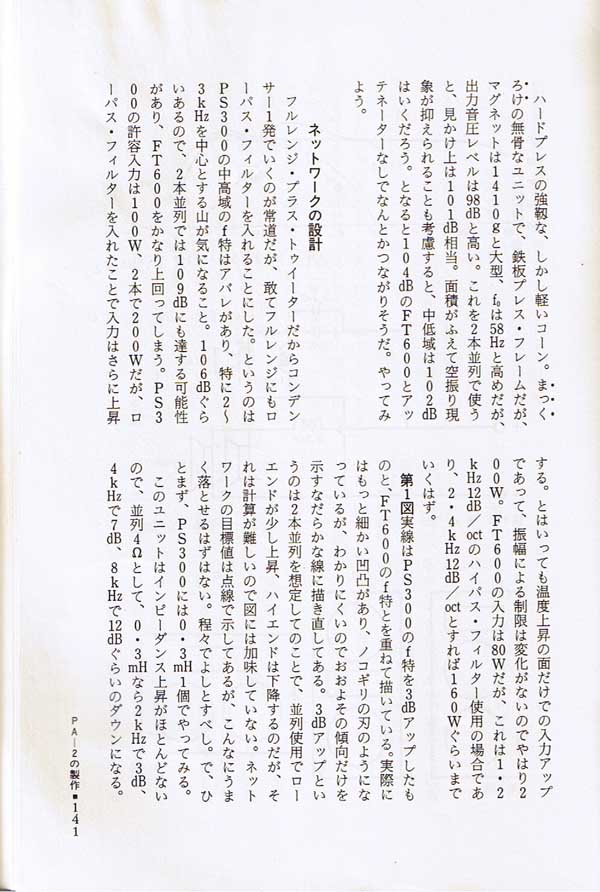 ハードプレスの強靱な、しかし軽いコーン。まっく
ろけの無骨なユニットで、鉄板プレス・フレームだが、
マグネットは1410gと大型、f₀は58Hzと高めだが、
出力音圧レベルは98dBと高い。これを2本並列で使う
と、見かけ上は101dB相当。面積がふえて空振り現
象が抑えられることも考慮すると、中低域は102dB
はいくだろう。となると104dBのFT600とアッ
テネーターなしでなんとかつながりそうだ。やってみ
よう。
ネットワークの設計
フルレンジ・プラス・トゥイーターだからコンデン
サー1発でいくのが常道だが、敢てフルレンジにもロ
ーパス・フィルターを入れることにした。というのは
PS300の中高域のf特はアバレがあり、特に2〜
3kHzを中心とする山が気になること。106dBぐら
いあるので、2本並列では109dBにも達する可能性
があり、FT600をかなり上回ってしまう。PS3
00の許容入力は100W、2本で200Wだが、ロ
ーパス・フィルターを入れたことで入力はさらに上昇
する。とはいっても温度上昇の面だけでの入力アップ
であって、振幅による制限は変化がないのでやはり2
00W。FT600の入力は80Wだが、これは1・2
kHz12dB/octのハイパス・フィルター使用の場合であ
り、2・4kHz12dB/octとすれば160Wぐらいまで
いくはず。
第1図実線はPS300のf特を3dBアップしたも
のと、FT600のf特とを重ねて描いている。実際に
はもっと細かい凹凸があり、ノコギリの刃のようにな
っているが、わかりにくいのでおおよその傾向だけを
示すなだらかな線に描き直してある。3dBアップとい
うのは2本並列を想定してのことで、並列使用でロー
エンドが少し上昇、ハイエンドは下降するのだが、そ
れは計算が難しいので図には加味していない。ネット
ワークの目標値は点線で示してあるが、こんなにうま
く落とせるはずはない。程々でよしとすべし。で、ひ
とまず、PS300には0・3mH1個でやってみる。
このユニットはインピーダンス上昇がほとんどない
ので、並列4Ωとして、0・3mHなら2kHzで3dB、
4kHzで7dB、8kHzで12dBぐらいのダウンになる。
PA—2の製作■141